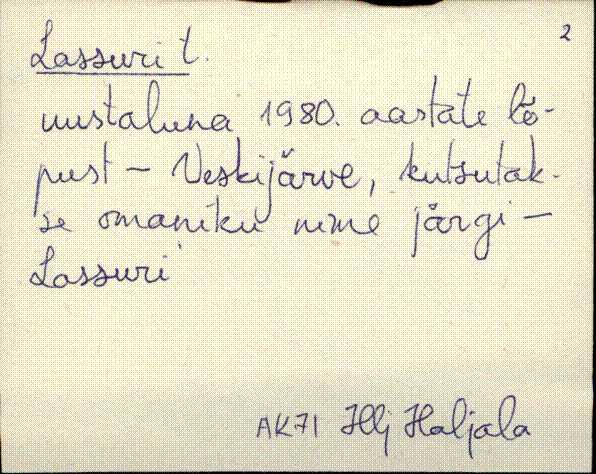 2
Lassuri t.
uustaluna 1980. aastate lõ-
pust – Veskijärve, kutsutak-
se omaniku nime järgi –
Lassuri
AK71 Hlj Haljala